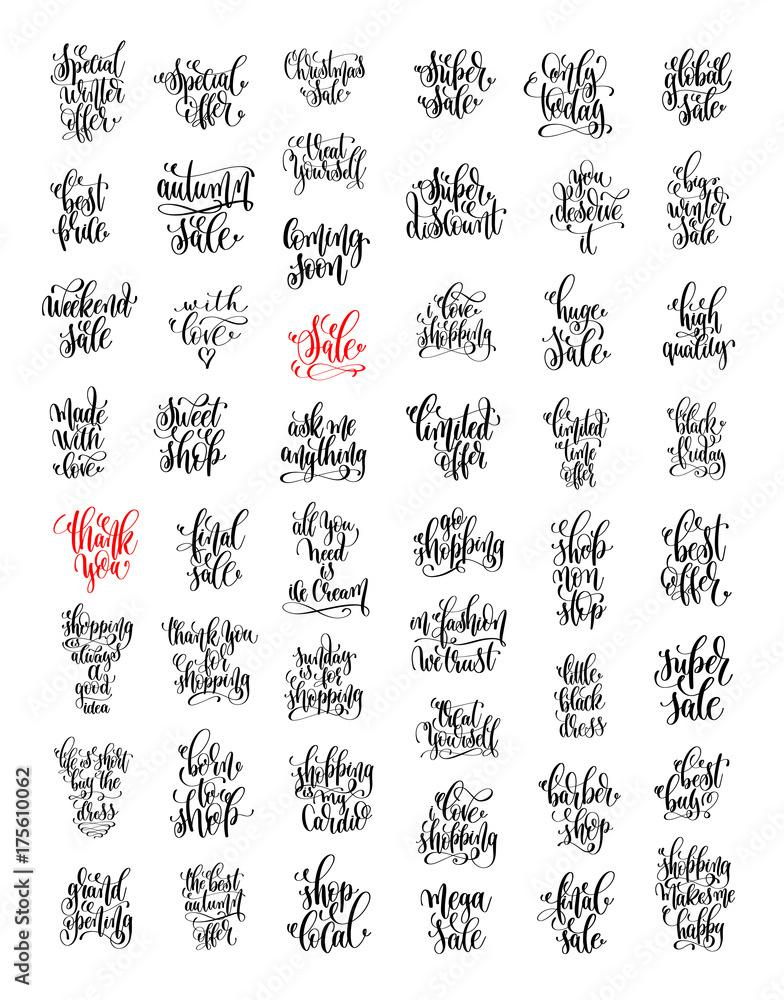 Special
winter
offer
Special
offer
Christmas
Sale
Super
sale
only
today
global
sale
best
price
autumn
sale
treat
yourself
Super
discount
you
deserve
it
big
winter
sale
Coming
soon
weekend
sale
with
love
Sale
i love
shopping
huge
sale
high
quality
made
with
love
sweet
shop
ask me
anything
limited
offer
limited
time
offer
black
friday
thank
you
final
sale
all you
need
is
ice cream
go
shopping
shop
non
stop
best
offer
shopping
is
always
a
good
idea
thank you
for
shopping
sunday
is for
shopping
in fashion
we trust
little
black
dress
super
sale
life is short
buy the
dress
born
to
shop
shopping
is my
cardio
treat
yourself
barber
shop
best
buy
i love
shopping
grand
opening
the best
autumn
offer
shop
local
mega
sale
final
sale
shopping
makes me
happy
Adobe Stock | #175610062
Adobe Stock